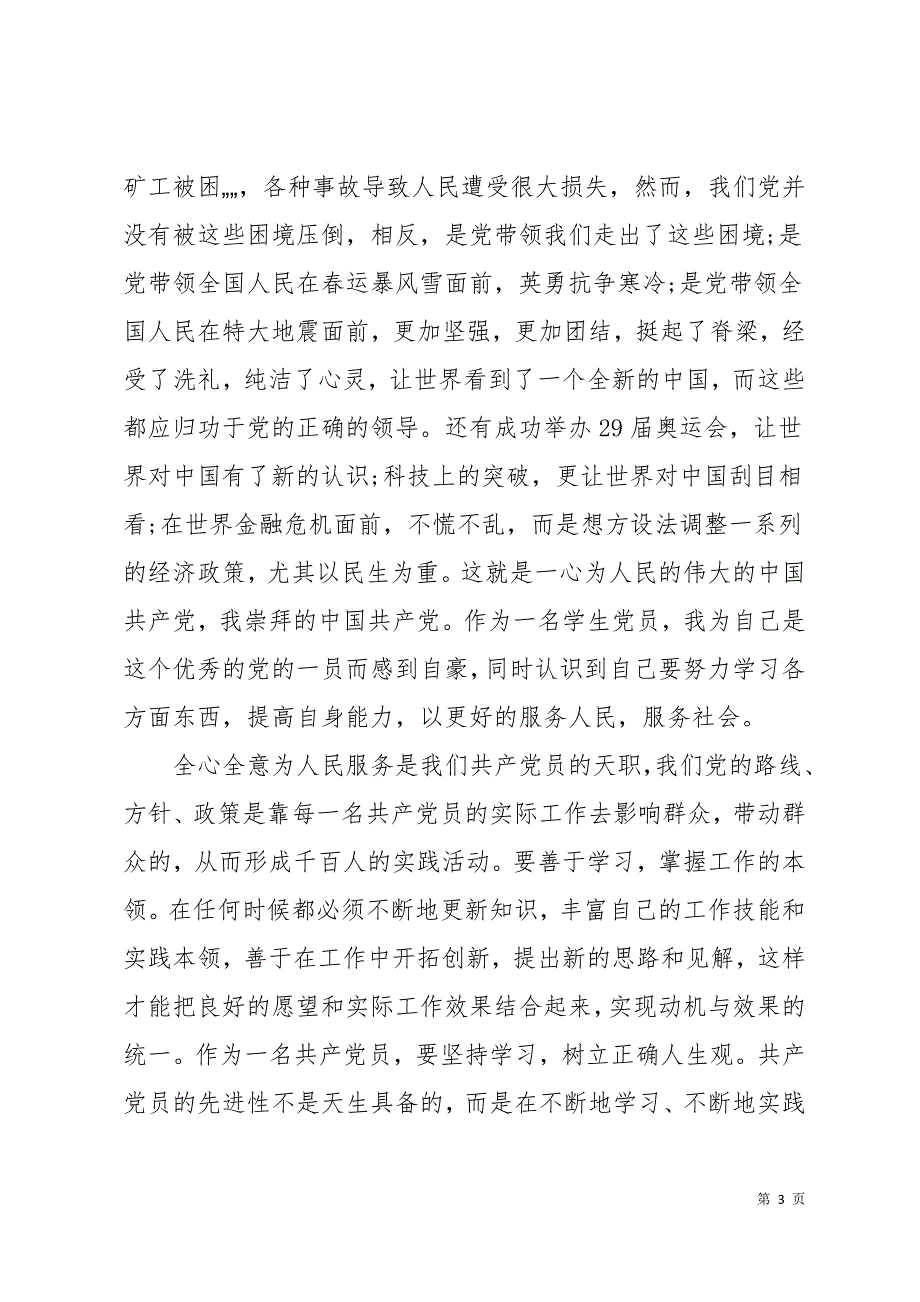 矿工被困„„，各种事故导致人民遭受很大损失，然而，我们党并
没有被这些困境压倒，相反，是党带领我们走出了这些困境;是
党带领全国人民在春运暴风雪面前，英勇抗争寒冷;是党带领全
国人民在特大地震面前，更加坚强，更加团结，挺起了脊梁，经
受了洗礼，纯洁了心灵，让世界看到了一个全新的中国，而这些
都应归功于党的正确的领导。还有成功举办 29 届奥运会，让世
界对中国有了新的认识;科技上的突破，更让世界对中国刮目相
看;在世界金融危机面前，不慌不乱，而是想方设法调整一系列
的经济政策，尤其以民生为重。这就是一心为人民的伟大的中国
共产党，我崇拜的中国共产党。作为一名学生党员，我为自己是
这个优秀的党的一员而感到自豪，同时认识到自己要努力学习各
方面东西，提高自身能力，以更好的服务人民，服务社会。
全心全意为人民服务是我们共产党员的天职，我们党的路线、
方针、政策是靠每一名共产党员的实际工作去影响群众，带动群
众的，从而形成千百人的实践活动。要善于学习，掌握工作的本
领。在任何时候都必须不断地更新知识，丰富自己的工作技能和
实践本领，善于在工作中开拓创新，提出新的思路和见解，这样
才能把良好的愿望和实际工作效果结合起来，实现动机与效果的
统一。作为一名共产党员，要坚持学习，树立正确人生观。共产
党员的先进性不是天生具备的，而是在不断地学习、不断地实践
第 3 页